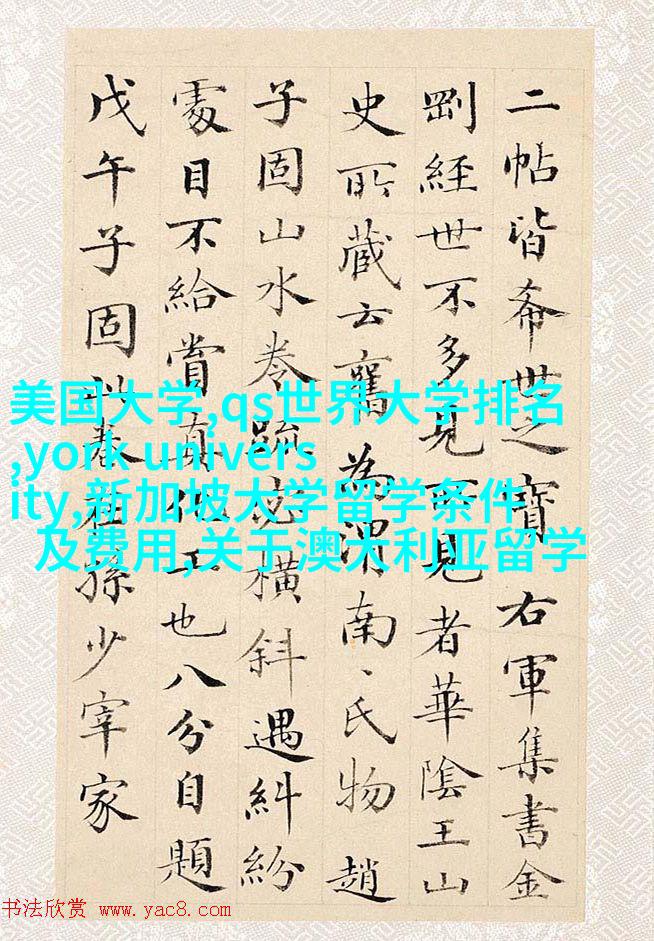 二帖皆希世之寶右軍集書金
剛經世不多見可見者華陰王山
史所藏云舊為渭南、氏物趙
子固山水卷疏密橫斜遇糾紛
處目不給賞真工也八分自題
戊午子固卷在孫少宰家
美国大学,qs世界大学排名
,york univers
ity,新加坡大学留学条件
及费用,关于澳大利亚留学
书法欣赏 www.yac8.com